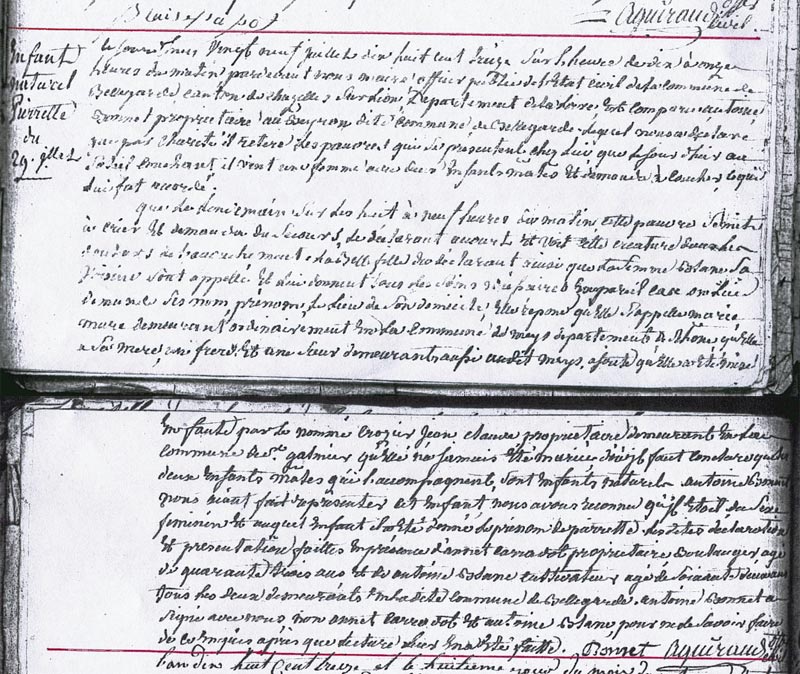 Aguiraud off
civil.
Enfant
naturel
Pierrette
du
29 jllet
Le jourd'hui vingt neuf juillet dix huit cent treize sur les heures de dix à onze
heures du matin pardevant nous maire officier public de l'Etat civil de la commune de
Bellegarde canton de chazelles sur lion, Departement de la loire, Est comparu antoine
Bonnet proprietaire au dite commune de Bellegarde lequel nous a déclaré
que par charité il retire les pauvres qui se presentent chez lui, que le jour d'hier au
soleil couchant il vint une femme avec deux Enfants males Et demanda à coucher, ce qui
lui fut accordé.
que le demain sur les huit à neuf heures du matin, cette pauvre se mit
à crier Et demanda du secours, le déclarant accourt Et vit cette creature dans les
douleurs de l'accouchement la belle fille du déclarant ainsi que la femme
sont appellé Et lui donnent tous les soins necessaires En pareil cas on lui
demande ses nom, prenom, le lieu de son domicile, Elle repond qu'elle s'appelle marie
demeurant ordinairement En la commune de meys departement du Rhone, qu'elle
a sa mere, un frere, Et une sœur demeurant aussi audit meys, ajouté qu'elle a été mise
Enfante par le nommé crozier jean claude proprietaire demeurant En la
commune de St galmier qu'elle n'a jamais Eté mariée, qu'il faut conclure que les
deux Enfants males qui l'accompagnent sont Enfants naturels antoine Bonnet
nous ayant fait representer cet Enfant nous avons reconnu qu'il Etoit du sexe
feminin Et auquel Enfant il a Eté donné le prenom de pierrette. les dites declaration
Et presentation faittes En presence d'annet carradot proprietaire Boulanger agé
de quarante trois ans et de antoine cultivateur agé de soixante
tous les deux demeurants En la dite commune de Bellegarde. antoine Bonnet a
signé avec nous, non annet carradot Et antoine pour ne le savoir faire
de ce enquis après que lecture leur En a Eté faitte. Bonnet Aguiraud off
l'an dix huit cent treize et le huitieme jour du mois